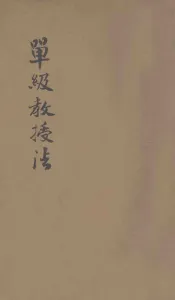 單級教授法